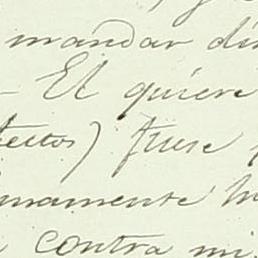 mandar di
- El quiere
ectos) fuese
namente h
contra mi